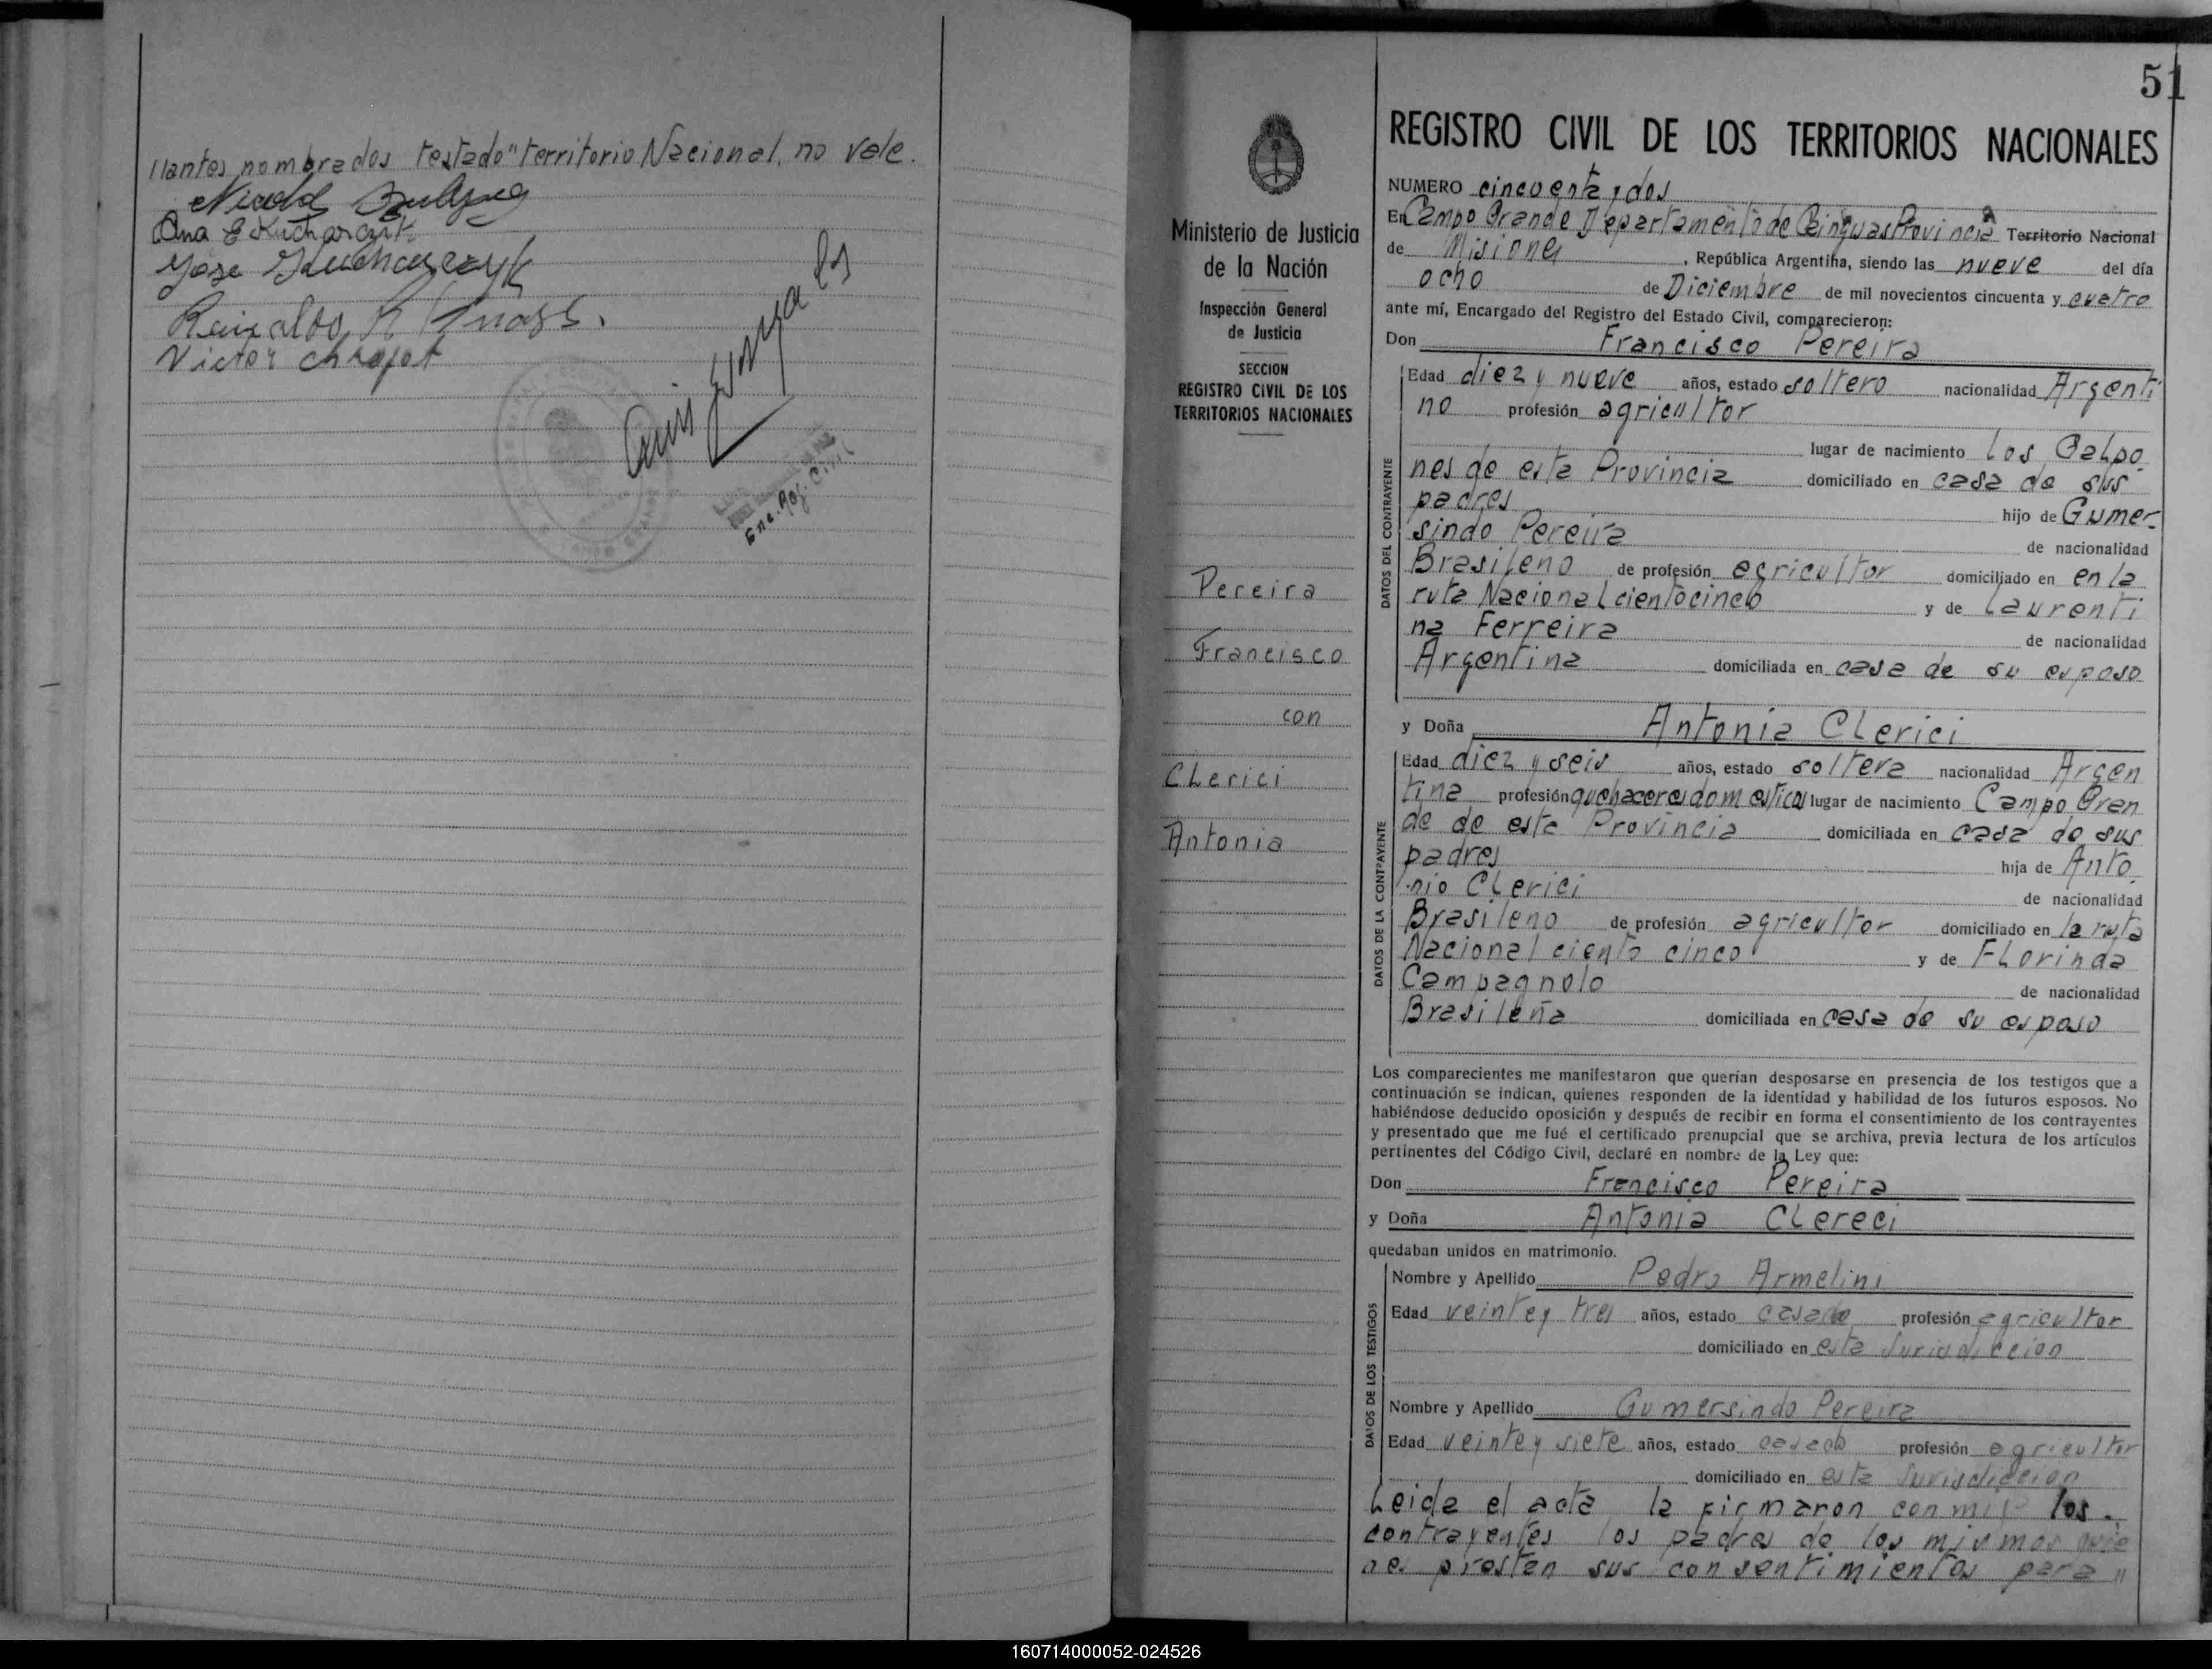 llantes nombrados testado "territorio Nacional, no vale.
Ana E Kucharczuk
Jose
Reinaldo R
Victor
Luis
Enc. Reg. Civil
51
Ministerio de Justicia
de la Nación
Inspección General
de Justicia
SECCION
REGISTRO CIVIL DE LOS
TERRITORIOS NACIONALES
Pereira
Francisco
con
CLerici
Antonia
REGISTRO CIVIL DE LOS TERRITORIOS NACIONALES
NUMERO cincuenta y dos
En Campo Grande Departamento de Cainguas Provincia Territorio Nacional
de Misiones, República Argentina, siendo las nueve del día
ocho de Diciembre de mil novecientos cincuenta y cuatro
ante mí, Encargado del Registro del Estado Civil, comparecieron:
Don Francisco Pereira
DATOS DEL CONTRAYENTE
Edad diez y nueve años, estado soltero nacionalidad Argenti
no profesión agricultor
lugar de nacimiento Los Galpo
nes de esta Provincia domiciliado en casa de sus
padres hijo de Gumer-
sindo Pereira de nacionalidad
Brasileño de profesión agricultor domiciliado en en la
ruta Nacional ciento cinco y de Laurenti
na Ferreira de nacionalidad
Argentina domiciliada en casa de su esposo
y Doña Antonia CLerici
DATOS DE LA CONTRAYENTE
Edad diez y seis años, estado soltera nacionalidad Argen
tina profesión quehaceres domesticos lugar de nacimiento Campo Gran
de de esta Provincia domiciliada en casa de sus
padres hija de Anto
nio CLerici de nacionalidad
Brasileno de profesión agricultor domiciliado en la ruta
Nacional ciento cinco y de FLorinda
Campagnolo de nacionalidad
Brasileña domiciliada en casa de su esposo
Los comparecientes me manifestaron que querían desposarse en presencia de los testigos que a
continuación se indican, quienes responden de la identidad y habilidad de los futuros esposos. No
habiéndose deducido oposición y después de recibir en forma el consentimiento de los contrayentes
y presentado que me fué el certificado prenupcial que se archiva, previa lectura de los artículos
pertinentes del Código Civil, declaré en nombre de la Ley que:
Don Francisco Pereira
y Doña Antonia CLereci
quedaban unidos en matrimonio.
DATOS DE LOS TESTIGOS
Nombre y Apellido Pedro Armelini
Edad veinte y tres años, estado casado profesión agricultor
domiciliado en esta Jurisdiccion
Nombre y Apellido Gumersindo Pereira
Edad veinte y siete años, estado casado profesión agricultor
domiciliado en esta Jurisdiccion
Leida el acta la firmaron conmigo los
contrayentes los padres de los mismos quie
nes prestan sus consentimientos para "
160714000052-024526